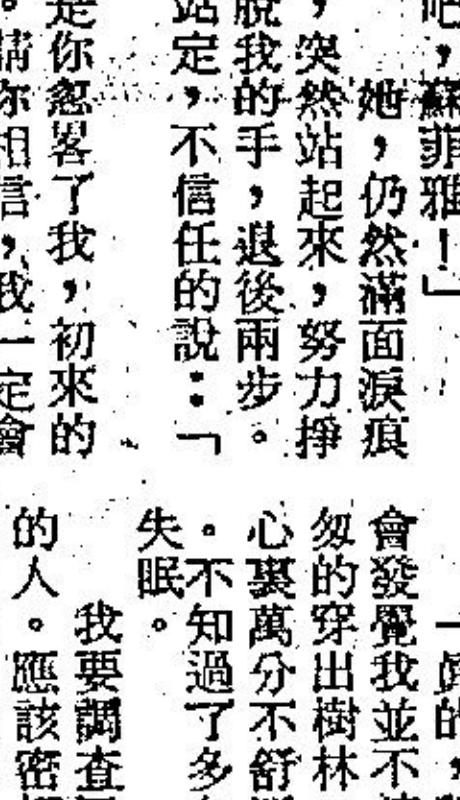 吧，蘇菲雅！」
她，仍然滿面淚痕
，突然站起來，努力掙
脫我的手，退後兩步。
站定，不信任的說：「
是你忽畧了我，初來的
。請你相信，我一定會
的，
會發覺我並不
匆的穿出樹林
心裏萬分不舒
。不知過了多
失眠。
我要調查
的人。應該密